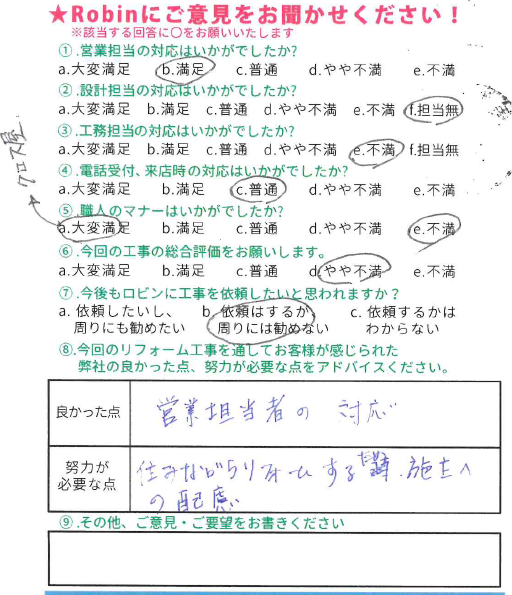 ★Robinにご意見をお聞かせください！
※該当する回答に〇をお願いいたします
①.営業担当の対応はいかがでしたか?
a.大変満足 b.満足 c.普通 d.やや不満 e.不満
②.設計担当の対応はいかがでしたか?
a.大変満足 b.満足 c.普通 d.やや不満 e.不満 f.担当無
③.工務担当の対応はいかがでしたか?
a.大変満足 b.満足 c.普通 d.やや不満 e.不満 f.担当無
④.電話受付、来店時の対応はいかがでしたか?
a.大変満足 b.満足 c.普通 d.やや不満 e.不満
クロス屋
⑤.職人のマナーはいかがでしたか?
a.大変満足 b.満足 c.普通 d.やや不満 e.不満
⑥.今回の工事の総合評価をお願いします。
a.大変満足 b.満足 c.普通 d.やや不満 e.不満
⑦.今後もロビンに工事を依頼したいと思われますか？
a. 依頼したいし、 b. 依頼はするが c. 依頼するかは
周りにも勧めたい 周りには勧めない わからない
⑧.今回のリフォーム工事を通してお客様が感じられた
弊社の良かった点、努力が必要な点をアドバイスください。
良かった点 営業担当者の 対応
努力が
必要な点
住みながらリフォームする 施主へ
の配慮
⑨.その他、ご意見・ご要望をお書きください